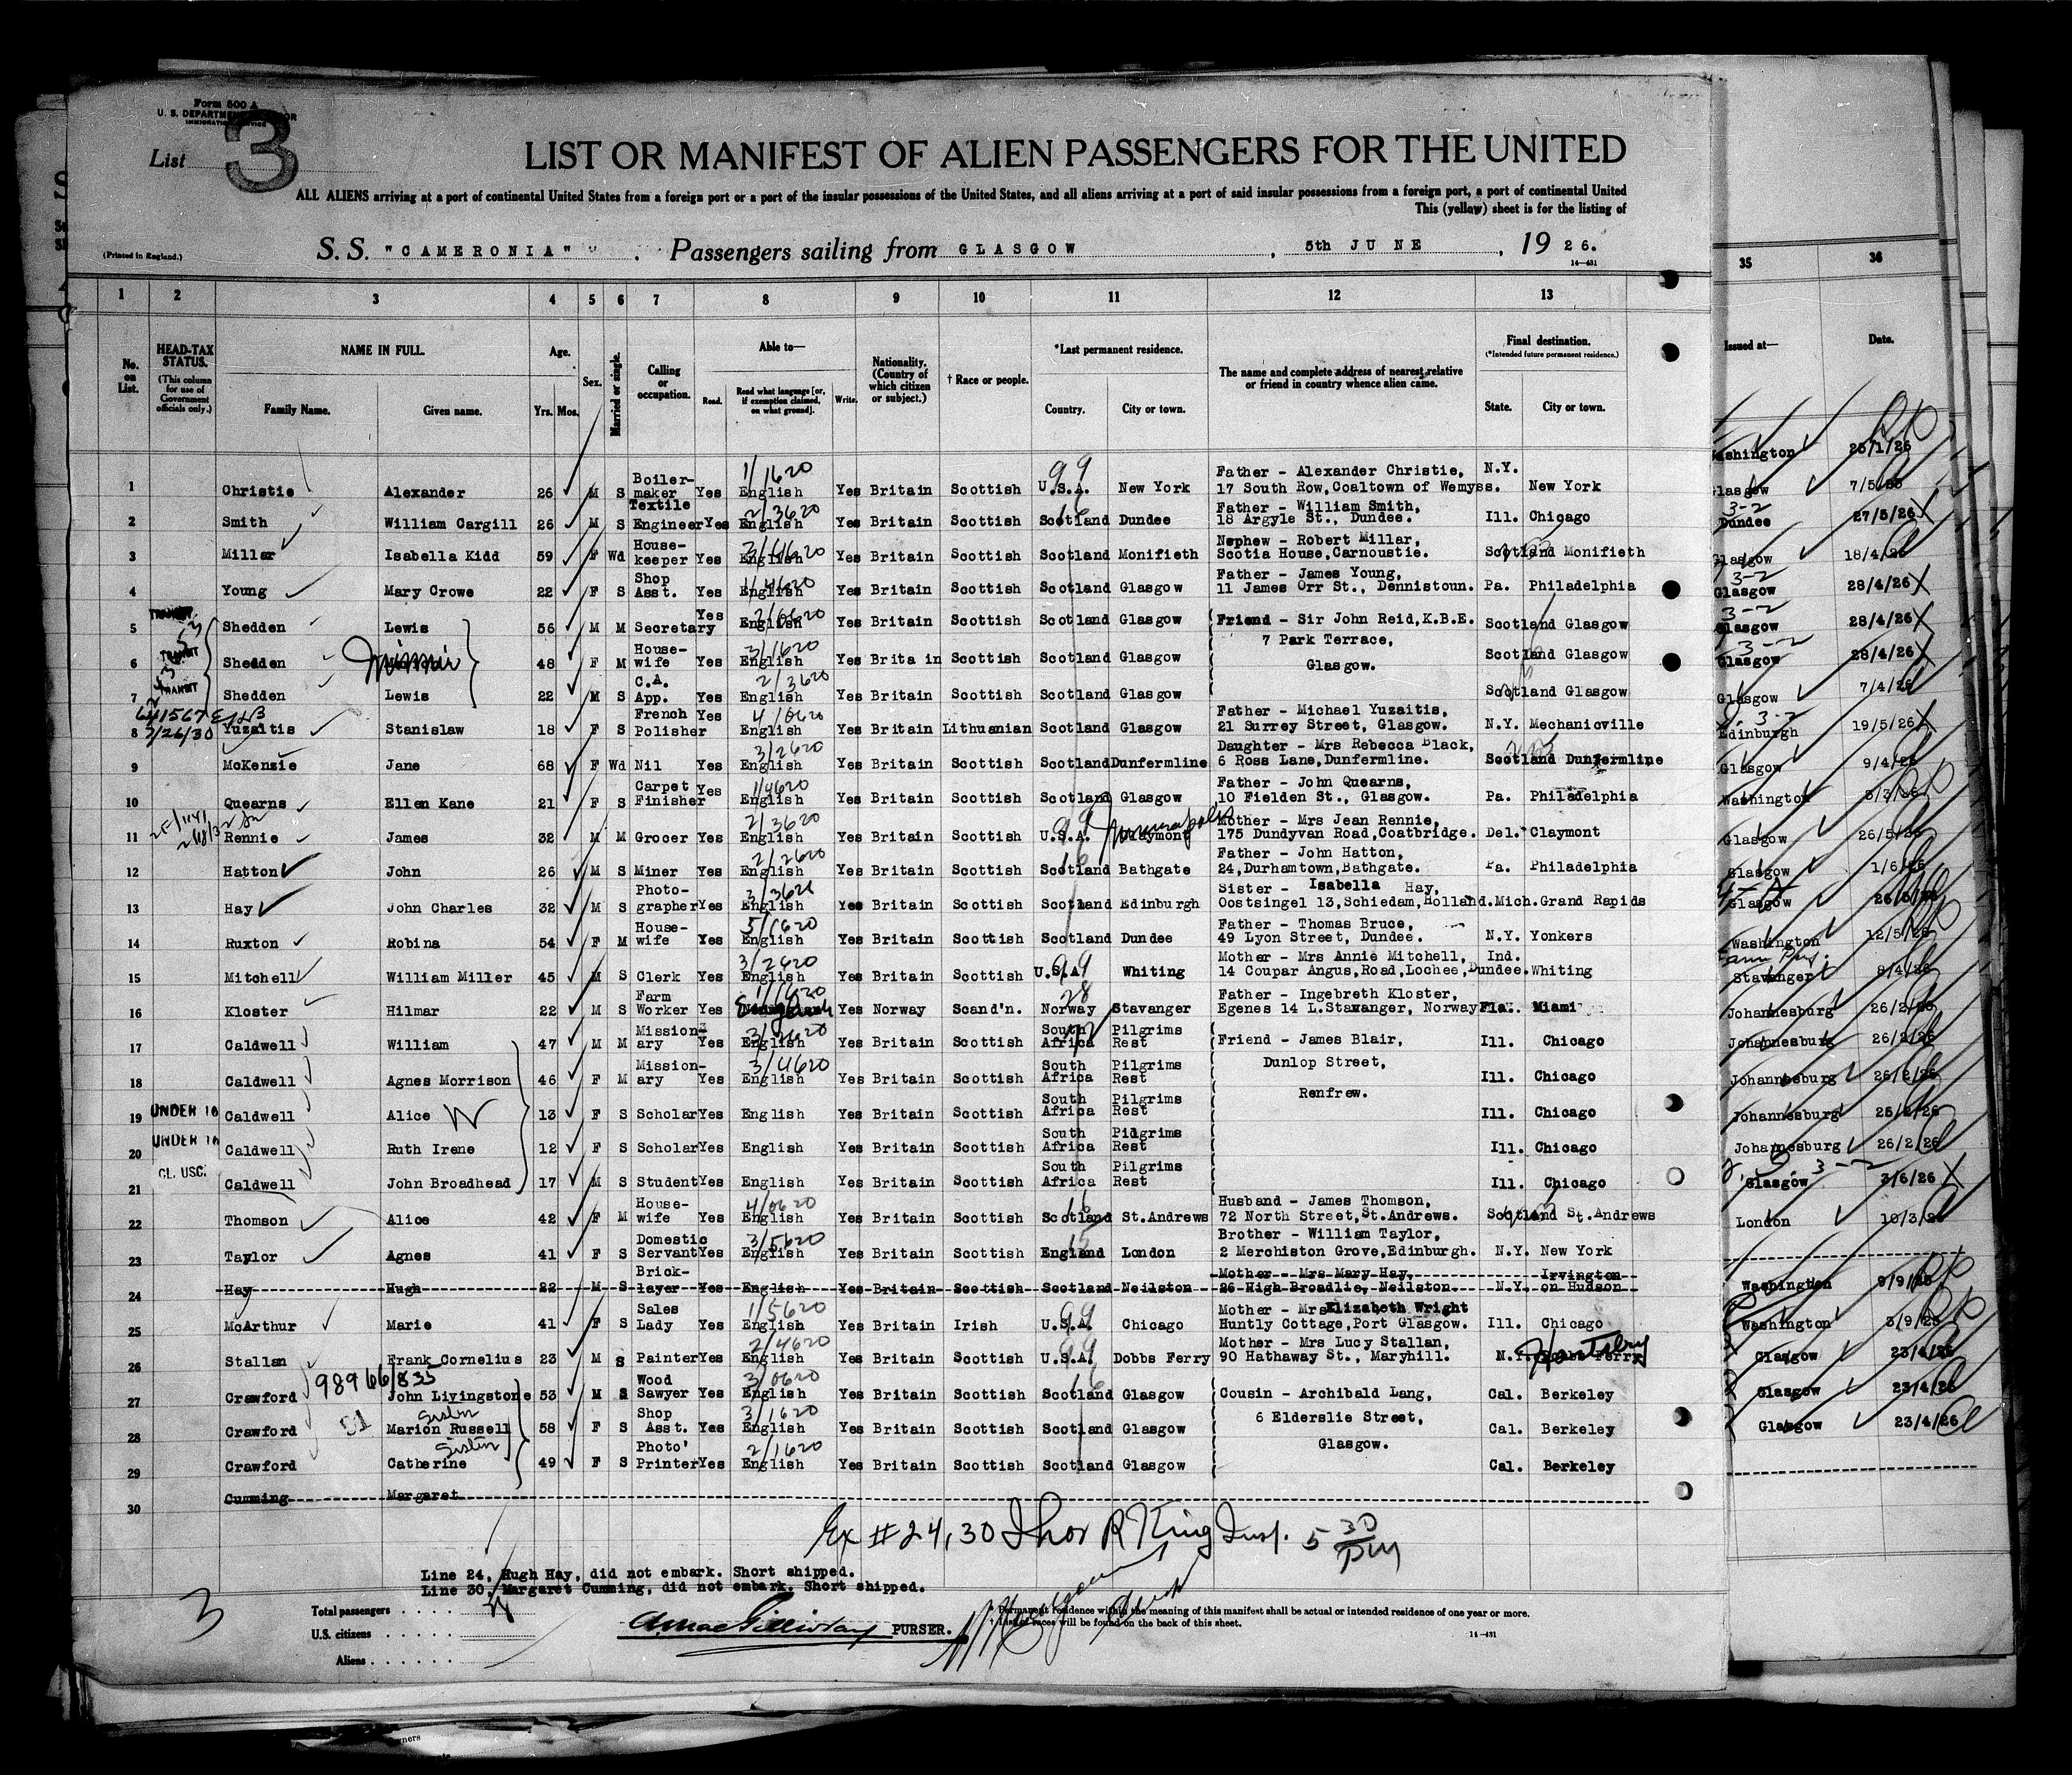 Form 500 A
U. S. DEPARTMENT OF LABOR
IMMIGRATION SERVICE
List 3
LIST OR MANIFEST OF ALIEN PASSENGERS FOR THE UNITED
ALL ALIENS arriving at a port of continental United States from a foreign port or a port of the insular possessions of the United States, and all aliens arriving at a port of said insular possessions from a foreign port, a port of continental United
This (yellow) sheet is for the listing of
(Printed in England.) S. S. "CAMERONIA" . Passengers sailing from GLASGOW , 5th JUNE , 1926.
14—431
1 2 3 4 5 6 7 8 9 10 11 12 13 35 36
No. on List. HEAD-TAX STATUS. (This column for use of Government officials only.) NAME IN FULL. Family Name. Given name. Age. Yrs. Mos. Sex. Married or single. Calling or occupation. Able to— Read. Read what language [or, if exemption claimed, on what ground]. Write. Nationality. (Country of which citizen or subject.) † Race or people. *Last permanent residence. Country. City or town. The name and complete address of nearest relative or friend in country whence alien came. Final destination. (*Intended future permanent residence.) State. City or town. Issued at— Date.
1 Christie Alexander 26 M S Boiler-maker Yes English Yes Britain Scottish U.S.A. New York Father - Alexander Christie, 17 South Row,Coaltown of Wemyss. N.Y. New York
2 Smith William Cargill 26 M S Textile Engineer Yes English Yes Britain Scottish Scotland Dundee Father - William Smith, 18 Argyle St., Dundee. Ill. Chicago
3 Millar Isabella Kidd 59 F Wd House-keeper Yes English Yes Britain Scottish Scotland Monifieth Nephew - Robert Millar, Scotia House,Carnoustie. Scotland Monifieth
4 Young Mary Crowe 22 F S Shop Asst. Yes English Yes Britain Scottish Scotland Glasgow Father - James Young, 11 James Orr St., Dennistoun. Pa. Philadelphia
TRANSIT
5 Shedden Lewis 56 M M Secretary Yes English Yes Britain Scottish Scotland Glasgow Friend - Sir John Reid,K.B.E. Scotland Glasgow
TRANSIT
6 Shedden Minnie 48 F M House-wife Yes English Yes Britain Scottish Scotland Glasgow 7 Park Terrace, Glasgow. Scotland Glasgow
TRANSIT
7 Shedden Lewis 22 M S C.A. App. Yes English Yes Britain Scottish Scotland Glasgow Scotland Glasgow
8 Yuzaitis Stanislaw 18 F S French Polisher Yes English Yes Britain Lithuanian Scotland Glasgow Father - Michael Yuzaitis, 21 Surrey Street, Glasgow. N.Y. Mechanicville
9 McKenzie Jane 68 F Wd Nil Yes English Yes Britain Scottish Scotland Dunfermline Daughter - Mrs Rebecca Black, 6 Ross Lane,Dunfermline. Scotland Dunfermline
10 Quearns Ellen Kane 21 F S Carpet Finisher Yes English Yes Britain Scottish Scotland Glasgow Father - John Quearns, 10 Fielden St., Glasgow. Pa. Philadelphia
11 Rennie James 32 M M Grocer Yes English Yes Britain Scottish U.S.A. Claymont Minneapolis Mother - Mrs Jean Rennie, 175 Dundyvan Road,Coatbridge. Del. Claymont
12 Hatton John 26 M S Miner Yes English Yes Britain Scottish Scotland Bathgate Father - John Hatton, 24,Durhamtown,Bathgate. Pa. Philadelphia
13 Hay John Charles 32 M S Photo-grapher Yes English Yes Britain Scottish Scotland Edinburgh Sister - Isabella Hay, Oostsingel 13,Schiedam,Holland. Mich. Grand Rapids
14 Ruxton Robina 54 F M House-wife Yes English Yes Britain Scottish Scotland Dundee Father - Thomas Bruce, 49 Lyon Street, Dundee. N.Y. Yonkers
15 Mitchell William Miller 45 M S Clerk Yes English Yes Britain Scottish U.S.A. Whiting Mother - Mrs Annie Mitchell, 14 Coupar Angus,Road,Lochee,Dundee. Ind. Whiting
16 Kloster Hilmar 22 M S Farm Worker Yes English Yes Norway Scand'n. Norway Stavanger Father - Ingebreth Kloster, Egenes 14 L.Stavanger, Norway Fla. Miami
17 Caldwell William 47 M M Mission-ary Yes English Yes Britain Scottish South Africa Pilgrims Rest Friend - James Blair, Ill. Chicago
18 Caldwell Agnes Morrison 46 F M Mission-ary Yes English Yes Britain Scottish South Africa Pilgrims Rest Dunlop Street, Renfrew. Ill. Chicago
19 UNDER 16 Caldwell Alice W 13 F S Scholar Yes English Yes Britain Scottish South Africa Pilgrims Rest Ill. Chicago
20 UNDER 16 Caldwell Ruth Irene 12 F S Scholar Yes English Yes Britain Scottish South Africa Pidgrims Rest Ill. Chicago
CL. USC.
21 Caldwell John Broadhead 17 M S Student Yes English Yes Britain Scottish South Africa Pilgrims Rest Ill. Chicago
22 Thomson Alice 42 F M House-wife Yes English Yes Britain Scottish Scotland St.Andrews Husband - James Thomson, 72 North Street,St.Andrews. Scotland St.Andrews
23 Taylor Agnes 41 F S Domestic Servant Yes English Yes Britain Scottish England London Brother - William Taylor, 2 Merchiston Grove,Edinburgh. N.Y. New York
24 Hay Hugh 22 M S Brick-layer Yes English Yes Britain Scottish Scotland Neilston Mother - Mrs Mary Hay, 26 High Broadlie, Neilston. N.Y. Irvington on Hudson
25 McArthur Marie 41 F S Sales Lady Yes English Yes Britain Irish U.S.A. Chicago Mother - Mrs Elizabeth Wright Huntly Cottage,Port Glasgow. Ill. Chicago
26 Stallan Frank Cornelius 23 M S Painter Yes English Yes Britain Scottish U.S.A. Dobbs Ferry Mother - Mrs Lucy Stallan, 90 Hathaway St., Maryhill. N.Y. Dobbs Ferry
27 Crawford John Livingstone 53 M S Wood Sawyer Yes English Yes Britain Scottish Scotland Glasgow Cousin - Archibald Lang, Cal. Berkeley
28 Crawford Marion Russell sister 58 F S Shop Asst. Yes English Yes Britain Scottish Scotland Glasgow 6 Elderslie Street, Cal. Berkeley
29 Crawford Catherine sister 49 F S Photo' Printer Yes English Yes Britain Scottish Scotland Glasgow Glasgow. Cal. Berkeley
30 Cumming Margaret
Washington 25/1/26
Glasgow
Dundee 27/5/26
Glasgow 18/4/26
Glasgow 28/4/26
Glasgow 28/4/26
Glasgow 28/4/26
Glasgow 7/4/26
Edinburgh 19/5/26
Glasgow 9/4/26
Washington
Glasgow 26/5/26
Glasgow 1/6/26
Glasgow
Washington
Stavanger
Johannesburg 26/2/26
Johannesburg 26/2/26
Johannesburg 26/2/26
Johannesburg 25/2/26
Johannesburg 26/2/26
Glasgow 3/6/26
London
Washington
Washington
Glasgow 23/4/26
Glasgow 23/4/26
Glasgow 23/4/26
Ex # 24, 30 Thor R King Insp. 5 30 pm
Line 24, Hugh Hay, did not embark. Short shipped.
Line 30, Margaret Cumming, did not embark. Short shipped.
3
Total passengers
U.S. citizens
Aliens
PURSER.
* Permanent residence within the meaning of this manifest shall be actual or intended residence of one year or more.
† List of races will be found on the back of this sheet.
14—431